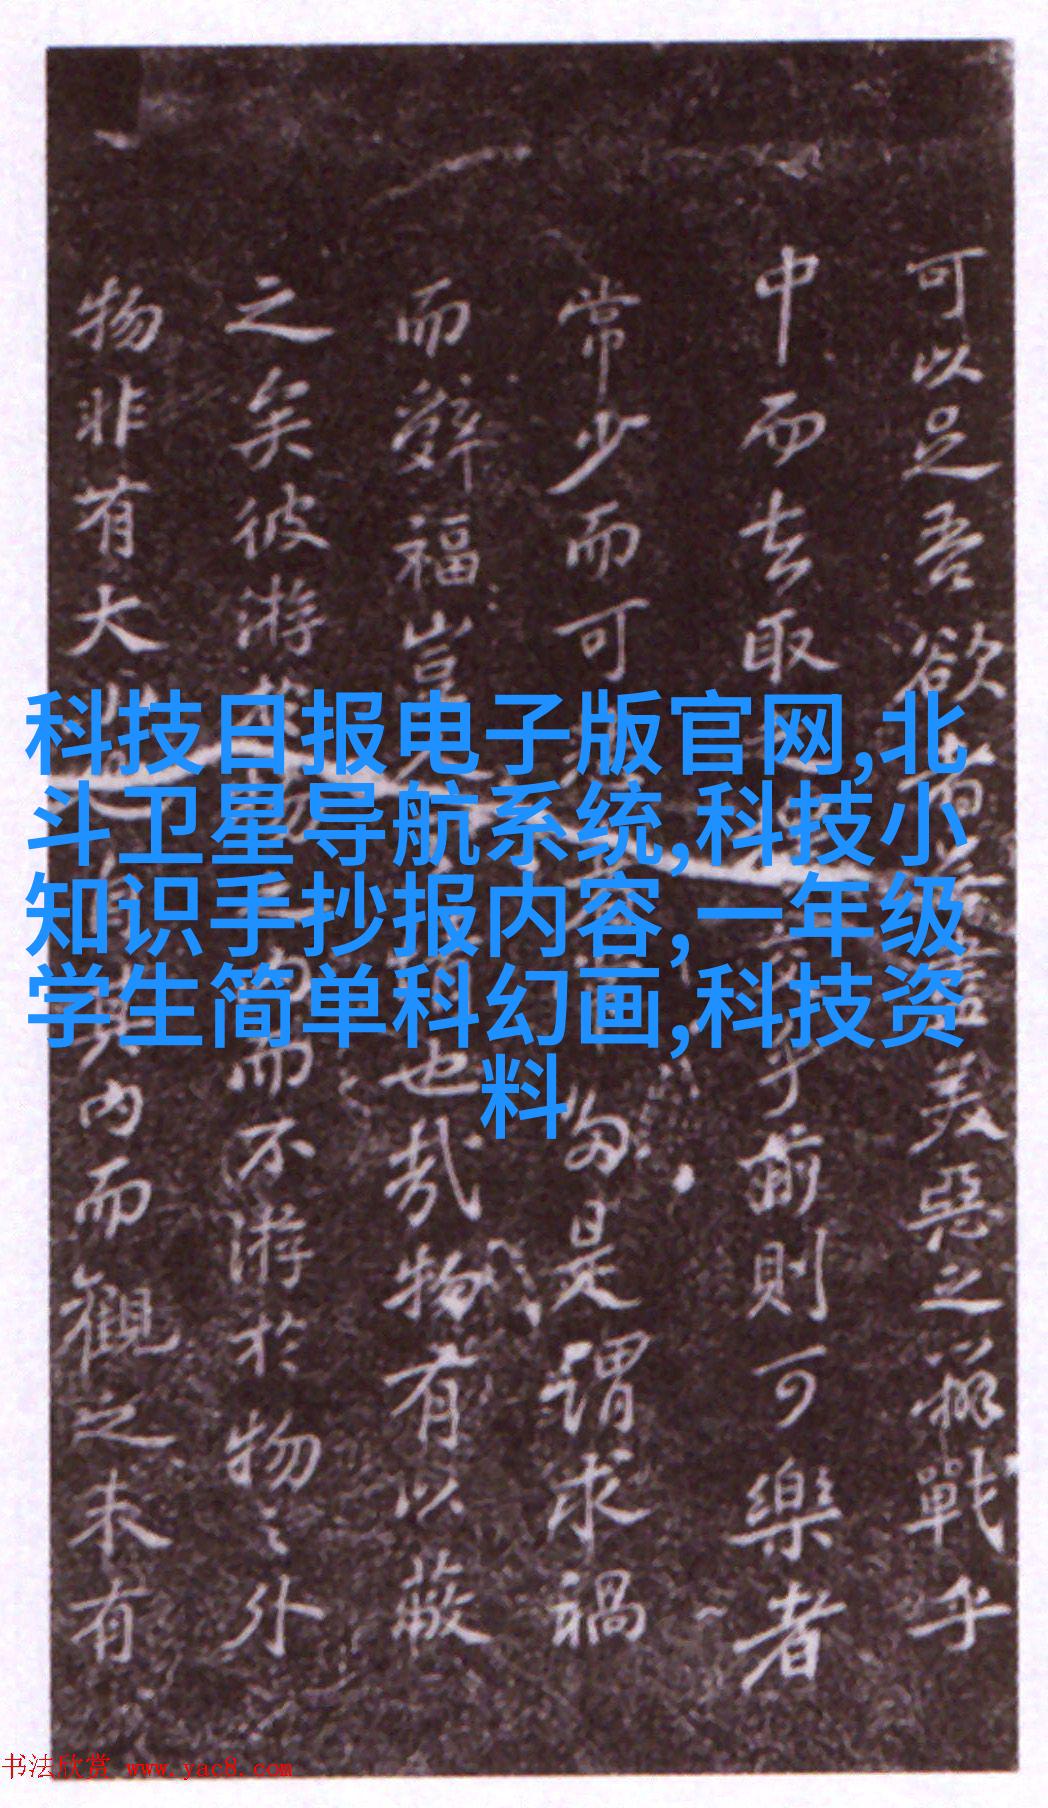 可以足吾欲者盡美惡之辨戰乎
中而去取乎前則可樂者
常少而可多是謂求禍
而辭福豈也哉物有以蔽
之矣彼游而不游於物之外
物非有大其内而觀之未有
科技日报电子版官网,北
斗卫星导航系统,科技小
知识手抄报内容,一年级
学生简单科幻画,科技资
料
书法欣赏 www.yac8.com